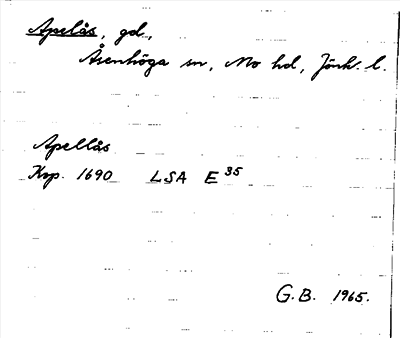 Apelås, gd.,
Åsenhöga sn, Mo hd, Jönk. l.
Apellås
Krp. 1690 LSA E 35
G.B. 1965.